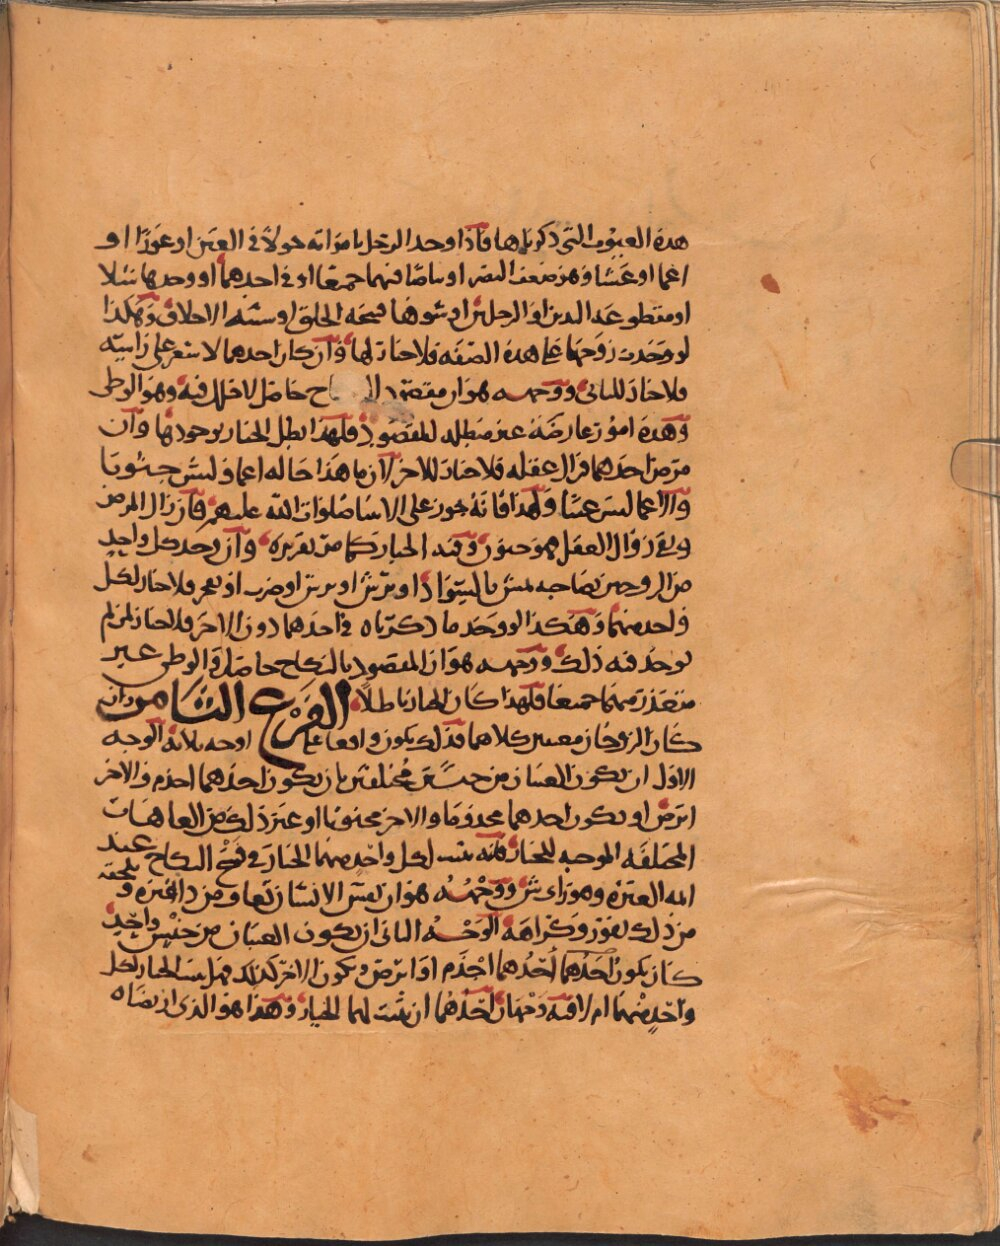 هذه العيوب التي ذكرناها فاذا وجد الرجل بامراته حولا في العين او عورا او
اعما او عشا وهو ضعف البصر او بياضا فيهما جميعا او في احدهما او وجدها شلا
او مقطوعة اليدين او الرجلين او شوها قبيحة الخلق او سيئة الاخلاق وهكذا
لو وجدت زوجها على هذه الصفه فلا خيار لها وان كان احدهما لا شعر على راسه
فلا خيار للثاني ووجهه هو ان مقصود النكاح حاصل لا خلل فيه وهو الوطى
وهذه امور عارضة غير مبطله للمقصود فلهذا بطل الخيار بوجودها وان
مرض احدهما فزال عقله فلا خيار للاخر لان ما هذا حاله اغما وليس جنونا
والاغما ليس عيبا ولهذا فانه يجوز على الانبيا صلوات الله عليهم فان زال المرض
وبقى زوال العقل فهو جنون وفيه الخيار كما مر تقريره وان وجد كل واحد
من الزوجين بصاحبه نمش بالسواد او برش او جرب او بجر فلا خيار لكل
واحد منهما وهكذا لو وجد ما ذكرناه في احدهما دون الاخر فلا خيار لمن لم
يوجد فيه ذلك ووجهه هو ان المقصود بالنكاح حاصل والوطى غير
متعذر منهما جميعا فلهذا كان الخيار باطلا الفرع الثامن وان
كان الزوجان معيبين كلاهما فذلك يكون واقعا على اوجه ثلاثه الوجه
الاول ان يكون العيبان من جنسين مختلفين بان يكون احدهما اجذم والاخر
ابرص او يكون احدهما مجذوما والاخر مجنونا او غير ذلك من العاهات
المختلفه الموجبه للخيار فانه يثبت لكل واحد منهما الخيار في فسخ النكاح عند
ايمه العترة وهو راى ش ووجهه هو ان نفس الانسان تعاف من دا غيره و يلحقه
من ذلك نفور وكراهة الوجه الثاني ان يكون العيبان من جنس واحد
كان يكون احدهما احدهما اجذم او ابرص ويكون الاخر كذلك فهل يثبت الخيار لكل
واحد منهما ام لا فيه وجهان احدهما ان يثبت لهما الخيار وهذا هو الذي ارتضاه